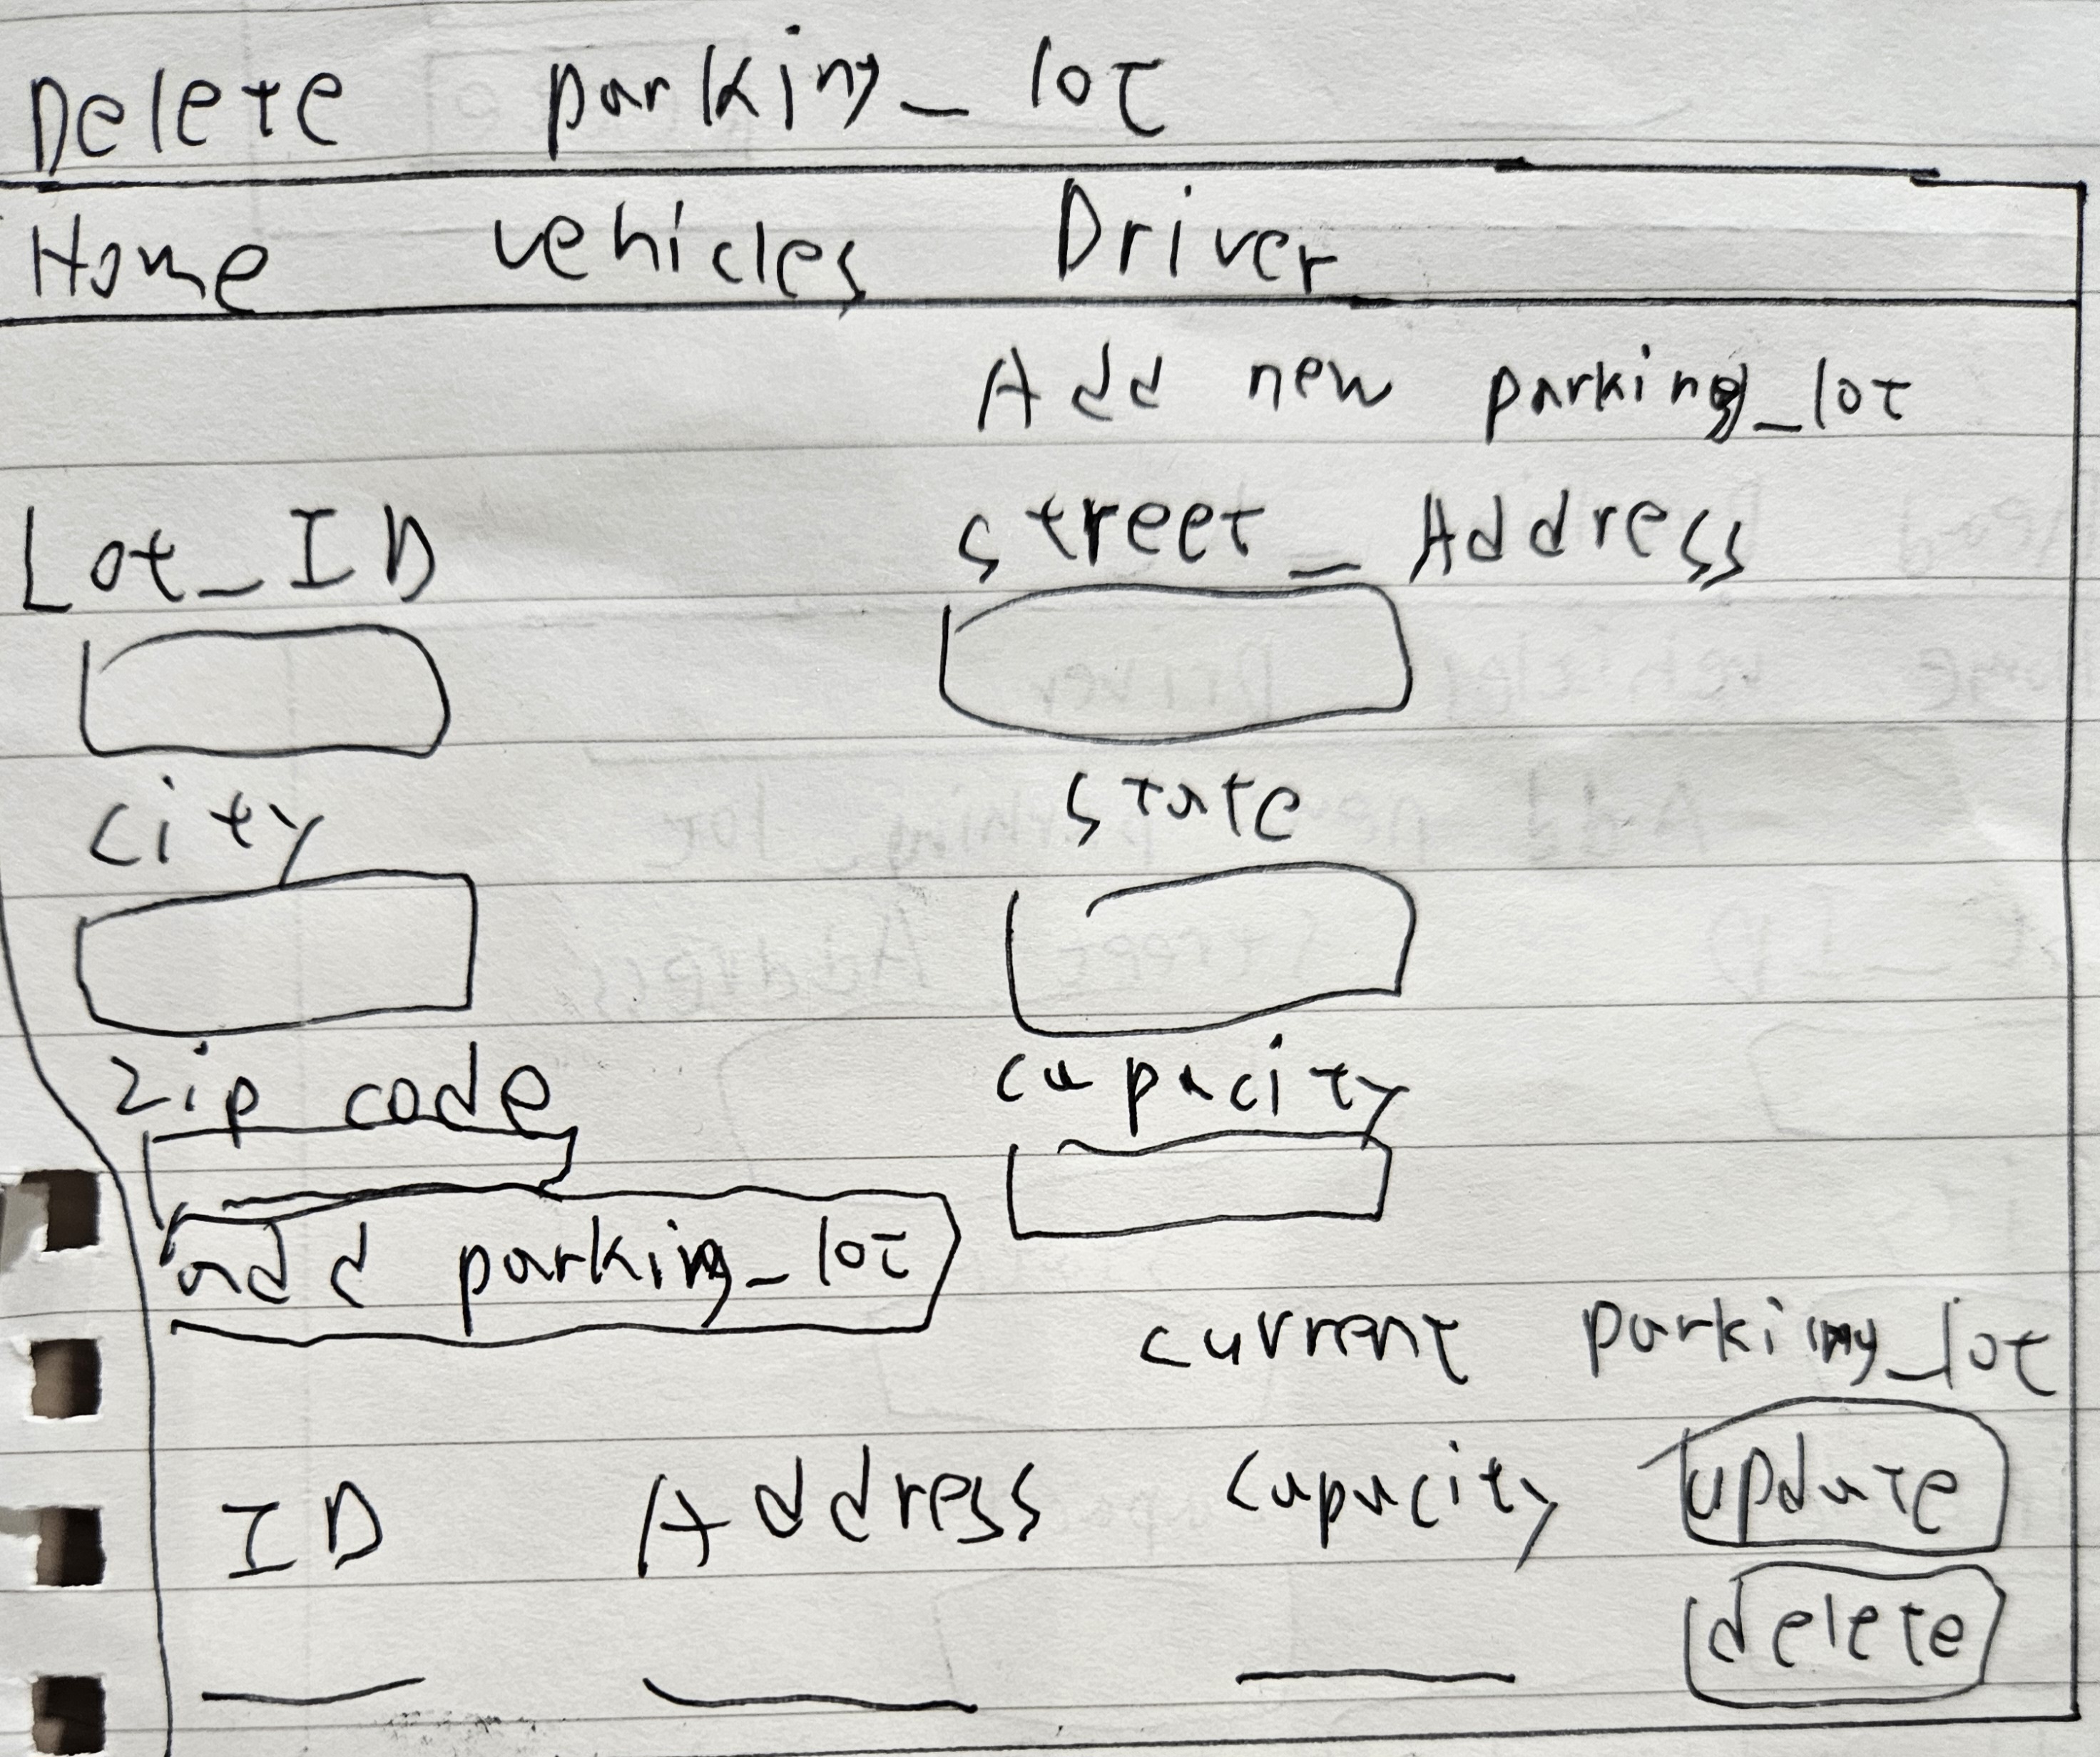 Delete parking_lot
Home vehicles Driver
Add new parking_lot
Lot_ID street_Address
city state
zip code capacity
add parking_lot
current parking_lot
ID Address capacity update
delete